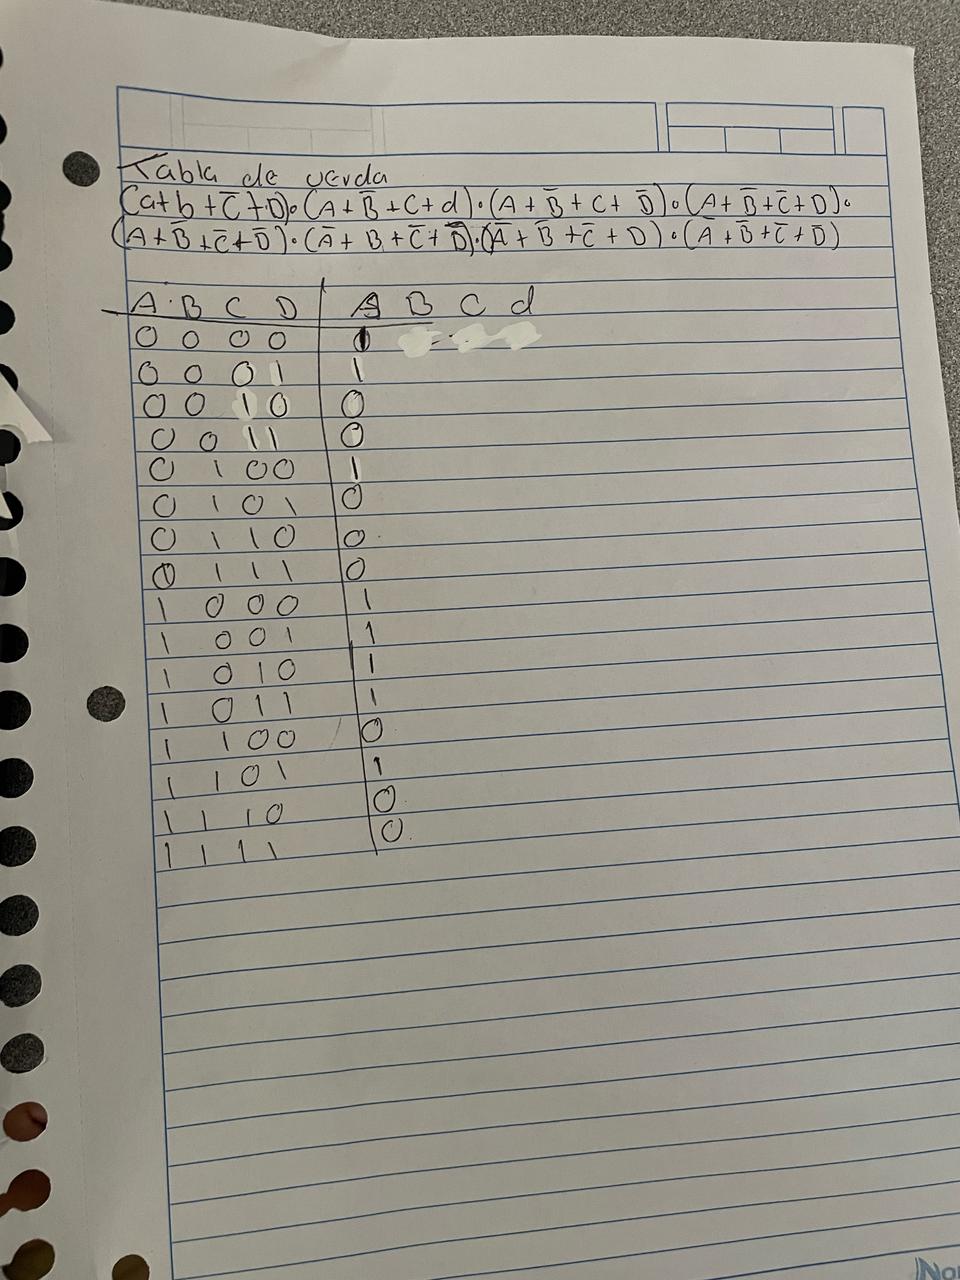 Tabla de verda
(a+b+C̅+D)·(A+B̅+C+d)·(A+B̅+C+D̅)·(A+B̅+C̅+D)·
(A+B̅+C̅+D̅)·(A̅+B+C̅+D̅)·(A̅+B̅+C̅+D)·(A̅+B̅+C̅+D̅)
A B C D A B C d
0 0 0 0
0 0 0 1 1
0 0 1 0 0
0 0 1 1 0
0 1 0 0 1
0 1 0 1 0
0 1 1 0 0
0 1 1 1 0
1 0 0 0 1
1 0 0 1 1
1 0 1 0 1
1 0 1 1 1
1 1 0 0 0
1 1 0 1 1
1 1 1 0 0
1 1 1 1 0